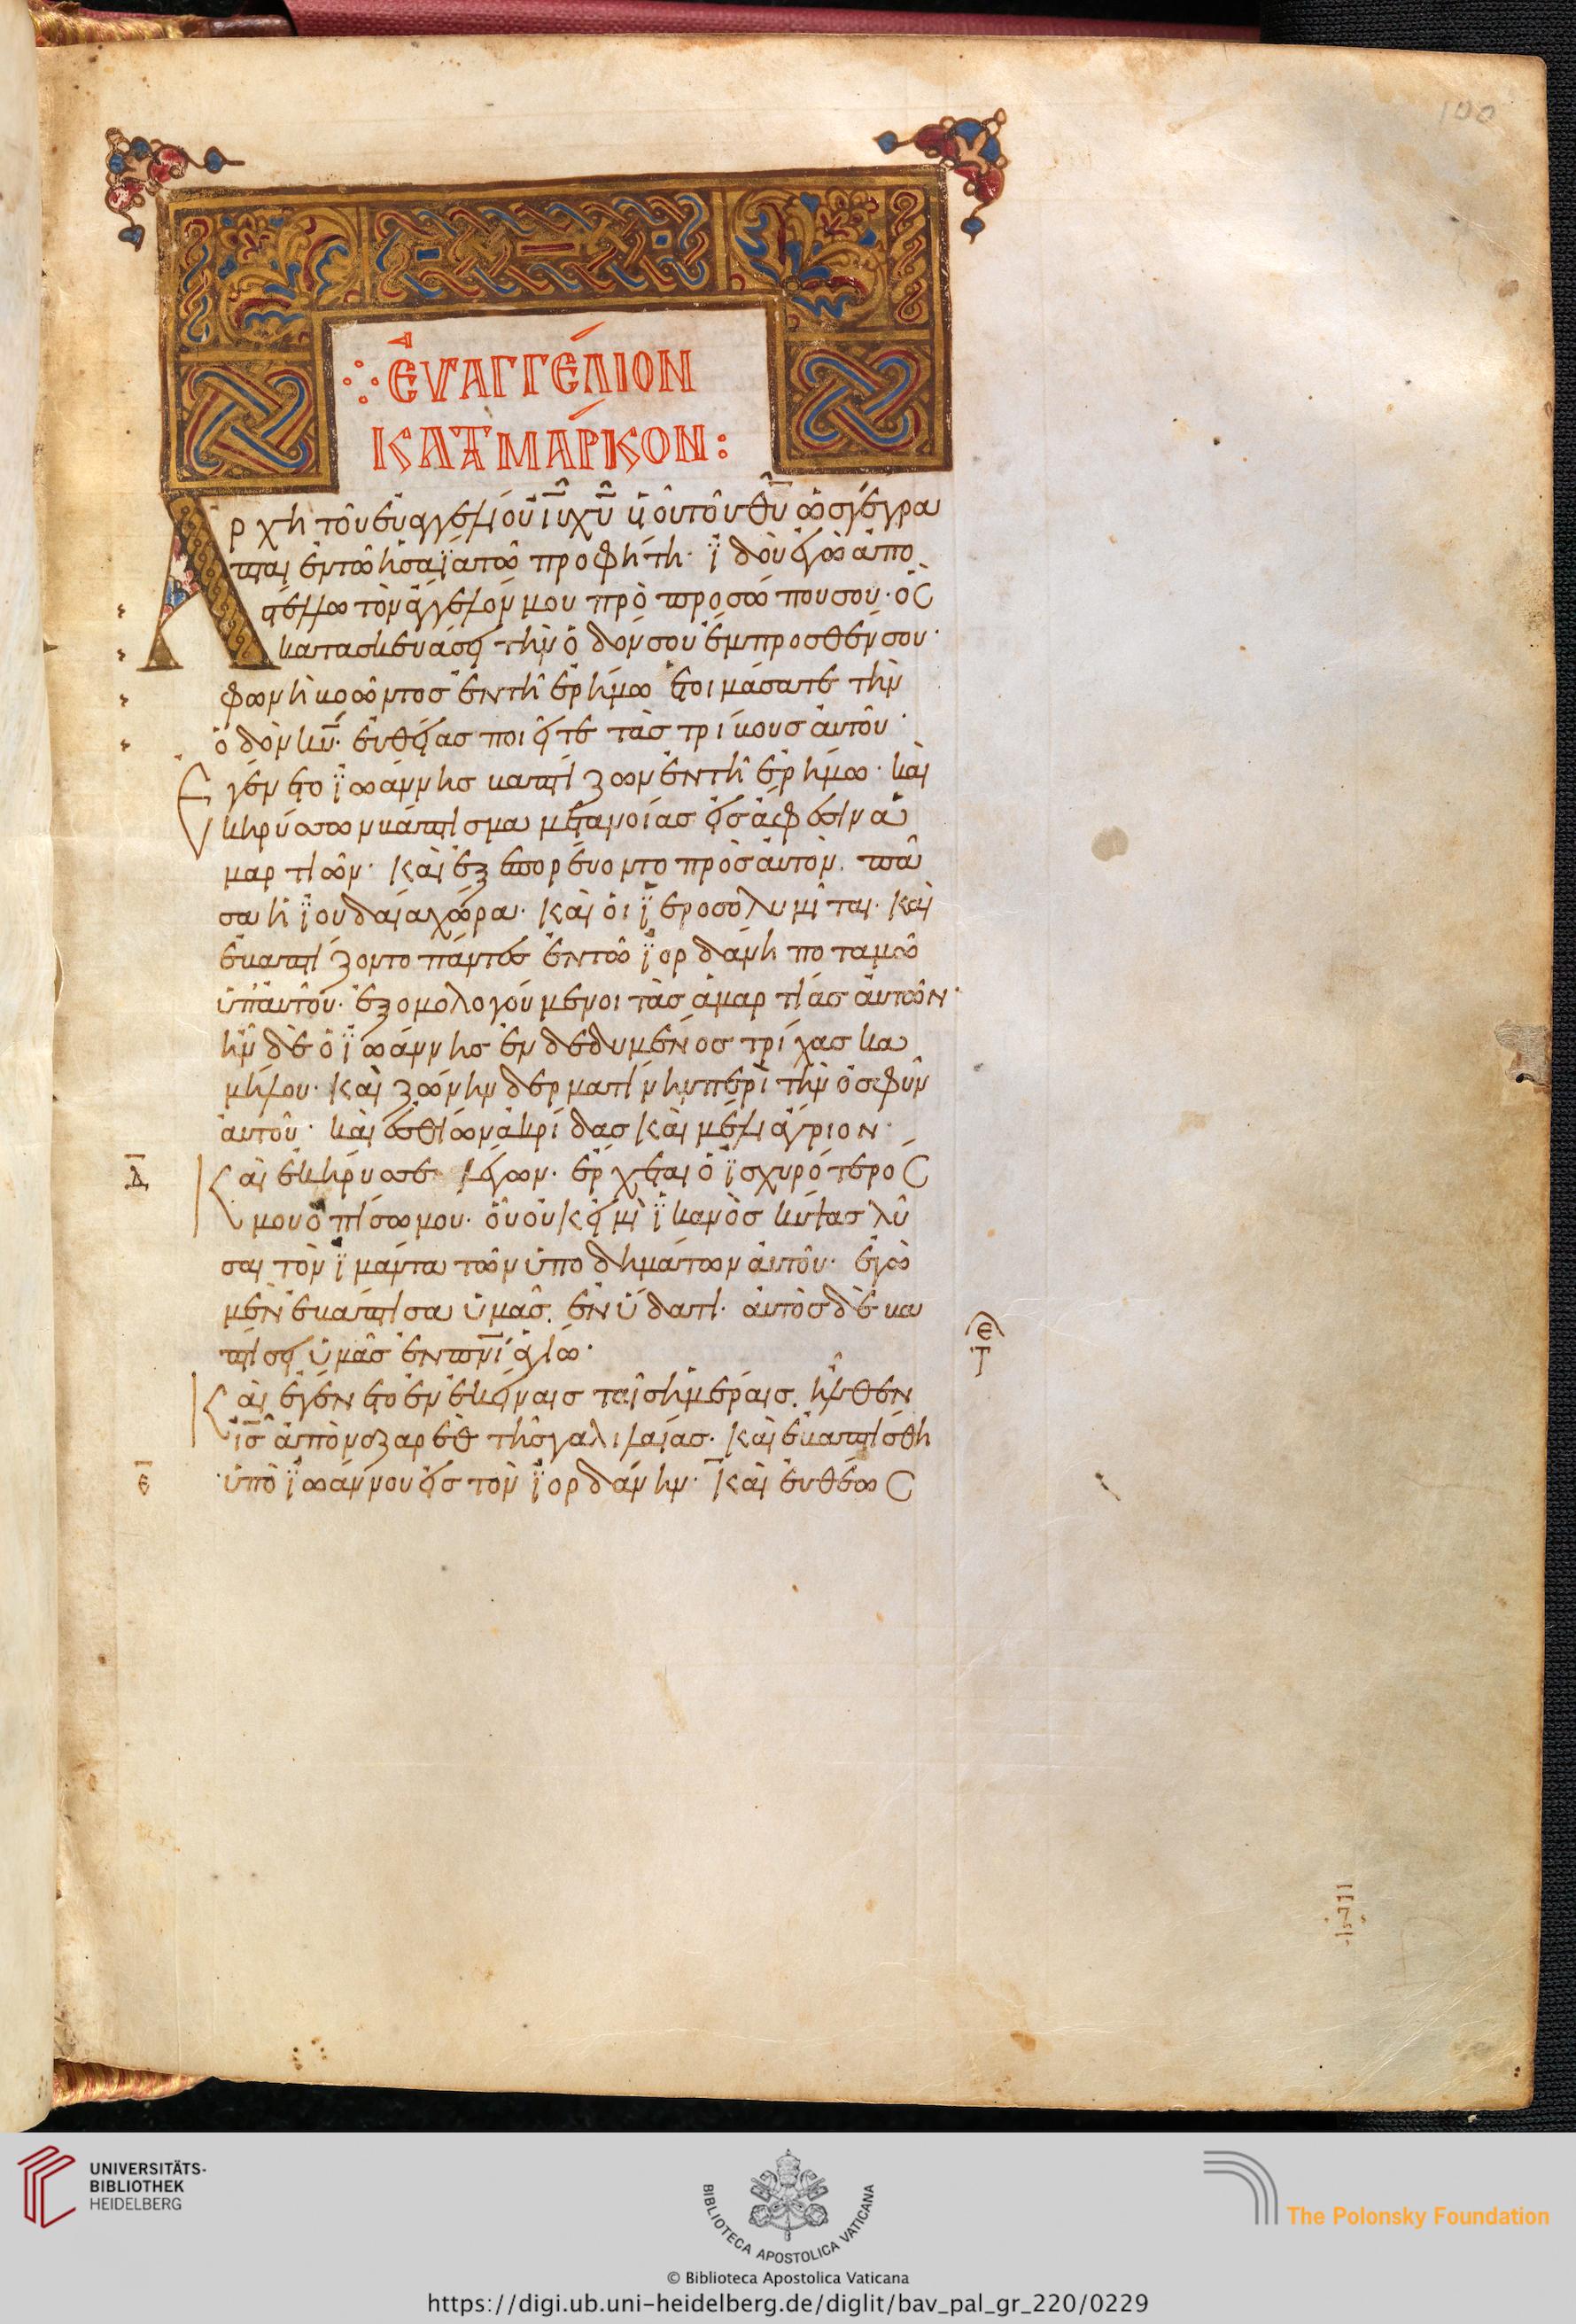 100
ἐυαγγέλιον
κατ μάρκον:
Ἀρχὴ τοῦ εὐαγγελίου ιυ χυ υἱοῦ τοῦ θυ ὡσ γέγρα
πται ἐν τῶ ἠσαΐα τῶ προφήτη· ἰδοὺ ἐγὼ ἀπο
στέλλω τὸν ἄγγελόν μου πρὸ προσώπου σου· ὃσ
κατασκευάσει τὴν ὁδόν σου ἔμπροσθέν σου·
φωνὴ βοῶντοσ ἐν τῆ ἐρήμω ἑτοιμάσατε τὴν
ὁδὸν κυ· εὐθείασ ποιεῖτε τὰσ τρίβουσ αὐτοῦ·
Ἐγένετο ϊωάννησ βαπτίζων ἐν τῆ ἐρήμω· καὶ
κηρύσσων βάπτισμα μετανοίασ εἰσ ἄφεσιν ἁ
μαρτιῶν· καὶ ἐξεπορέυοντο πρὸσ ἀυτὸν. πᾶ
σα ἡ ϊουδαία χώρα· καὶ ὁι ϊεροσολυμῖται· καὶ
ἐβαπτίζοντο πάντεσ ἐν τῶ ϊορδάνη ποταμῶ
ὑπ᾽ ἀυτοῦ· ἐξομολογούμενοι τὰσ ἁμαρτίασ ἀυτῶν·
ἦν δὲ ὁ ϊωάννησ ἐνδεδυμένοσ τρίχασ κα
μήλου· καὶ ζώνην δερματίνην περὶ τὴν ὀσφῦν
ἀυτοῦ· καὶ ἐσθίων ἀκρίδασ καὶ μέλι ἄγριον·
δ Καὶ ἐκήρυσσε λέγων· ἔρχεται ὁ ϊσχυρότεροσ
μου ὀπίσω μου· ὃυ ὀυκ ἐιμὶ ϊκανὸσ κύψασ λῦ
σαι τὸν ϊμάντα τῶν ὑποδημάτων ἀυτοῦ· ἐγὼ
μὲν ἐβάπτισα ὑμᾶσ. ἐν ὕδατι· ἀυτὸσ δὲ βα
πτίσει ὑμᾶσ ἐν πνι ἁγίω·
Καὶ ἐγένετο ἐν ἐκείναισ ταῖσ ἡμέραισ. ἦλθεν
ισ ἀπὸ νσζαρὲθ τῆσ γαλιλαίασ· καὶ ἐβαπτίσθη
ε ὑπὸ ϊωάννου εἰσ τὸν ϊορδάνην· καὶ ἐυθέωσ
UNIVERSITÄTS-
BIBLIOTHEK
HEIDELBERG
BIBLIOTECA APOSTOLICA VATICANA
The Polonsky Foundation
© Biblioteca Apostolica Vaticana
https://digi.ub.uni-heidelberg.de/diglit/bav_pal_gr_220/0229